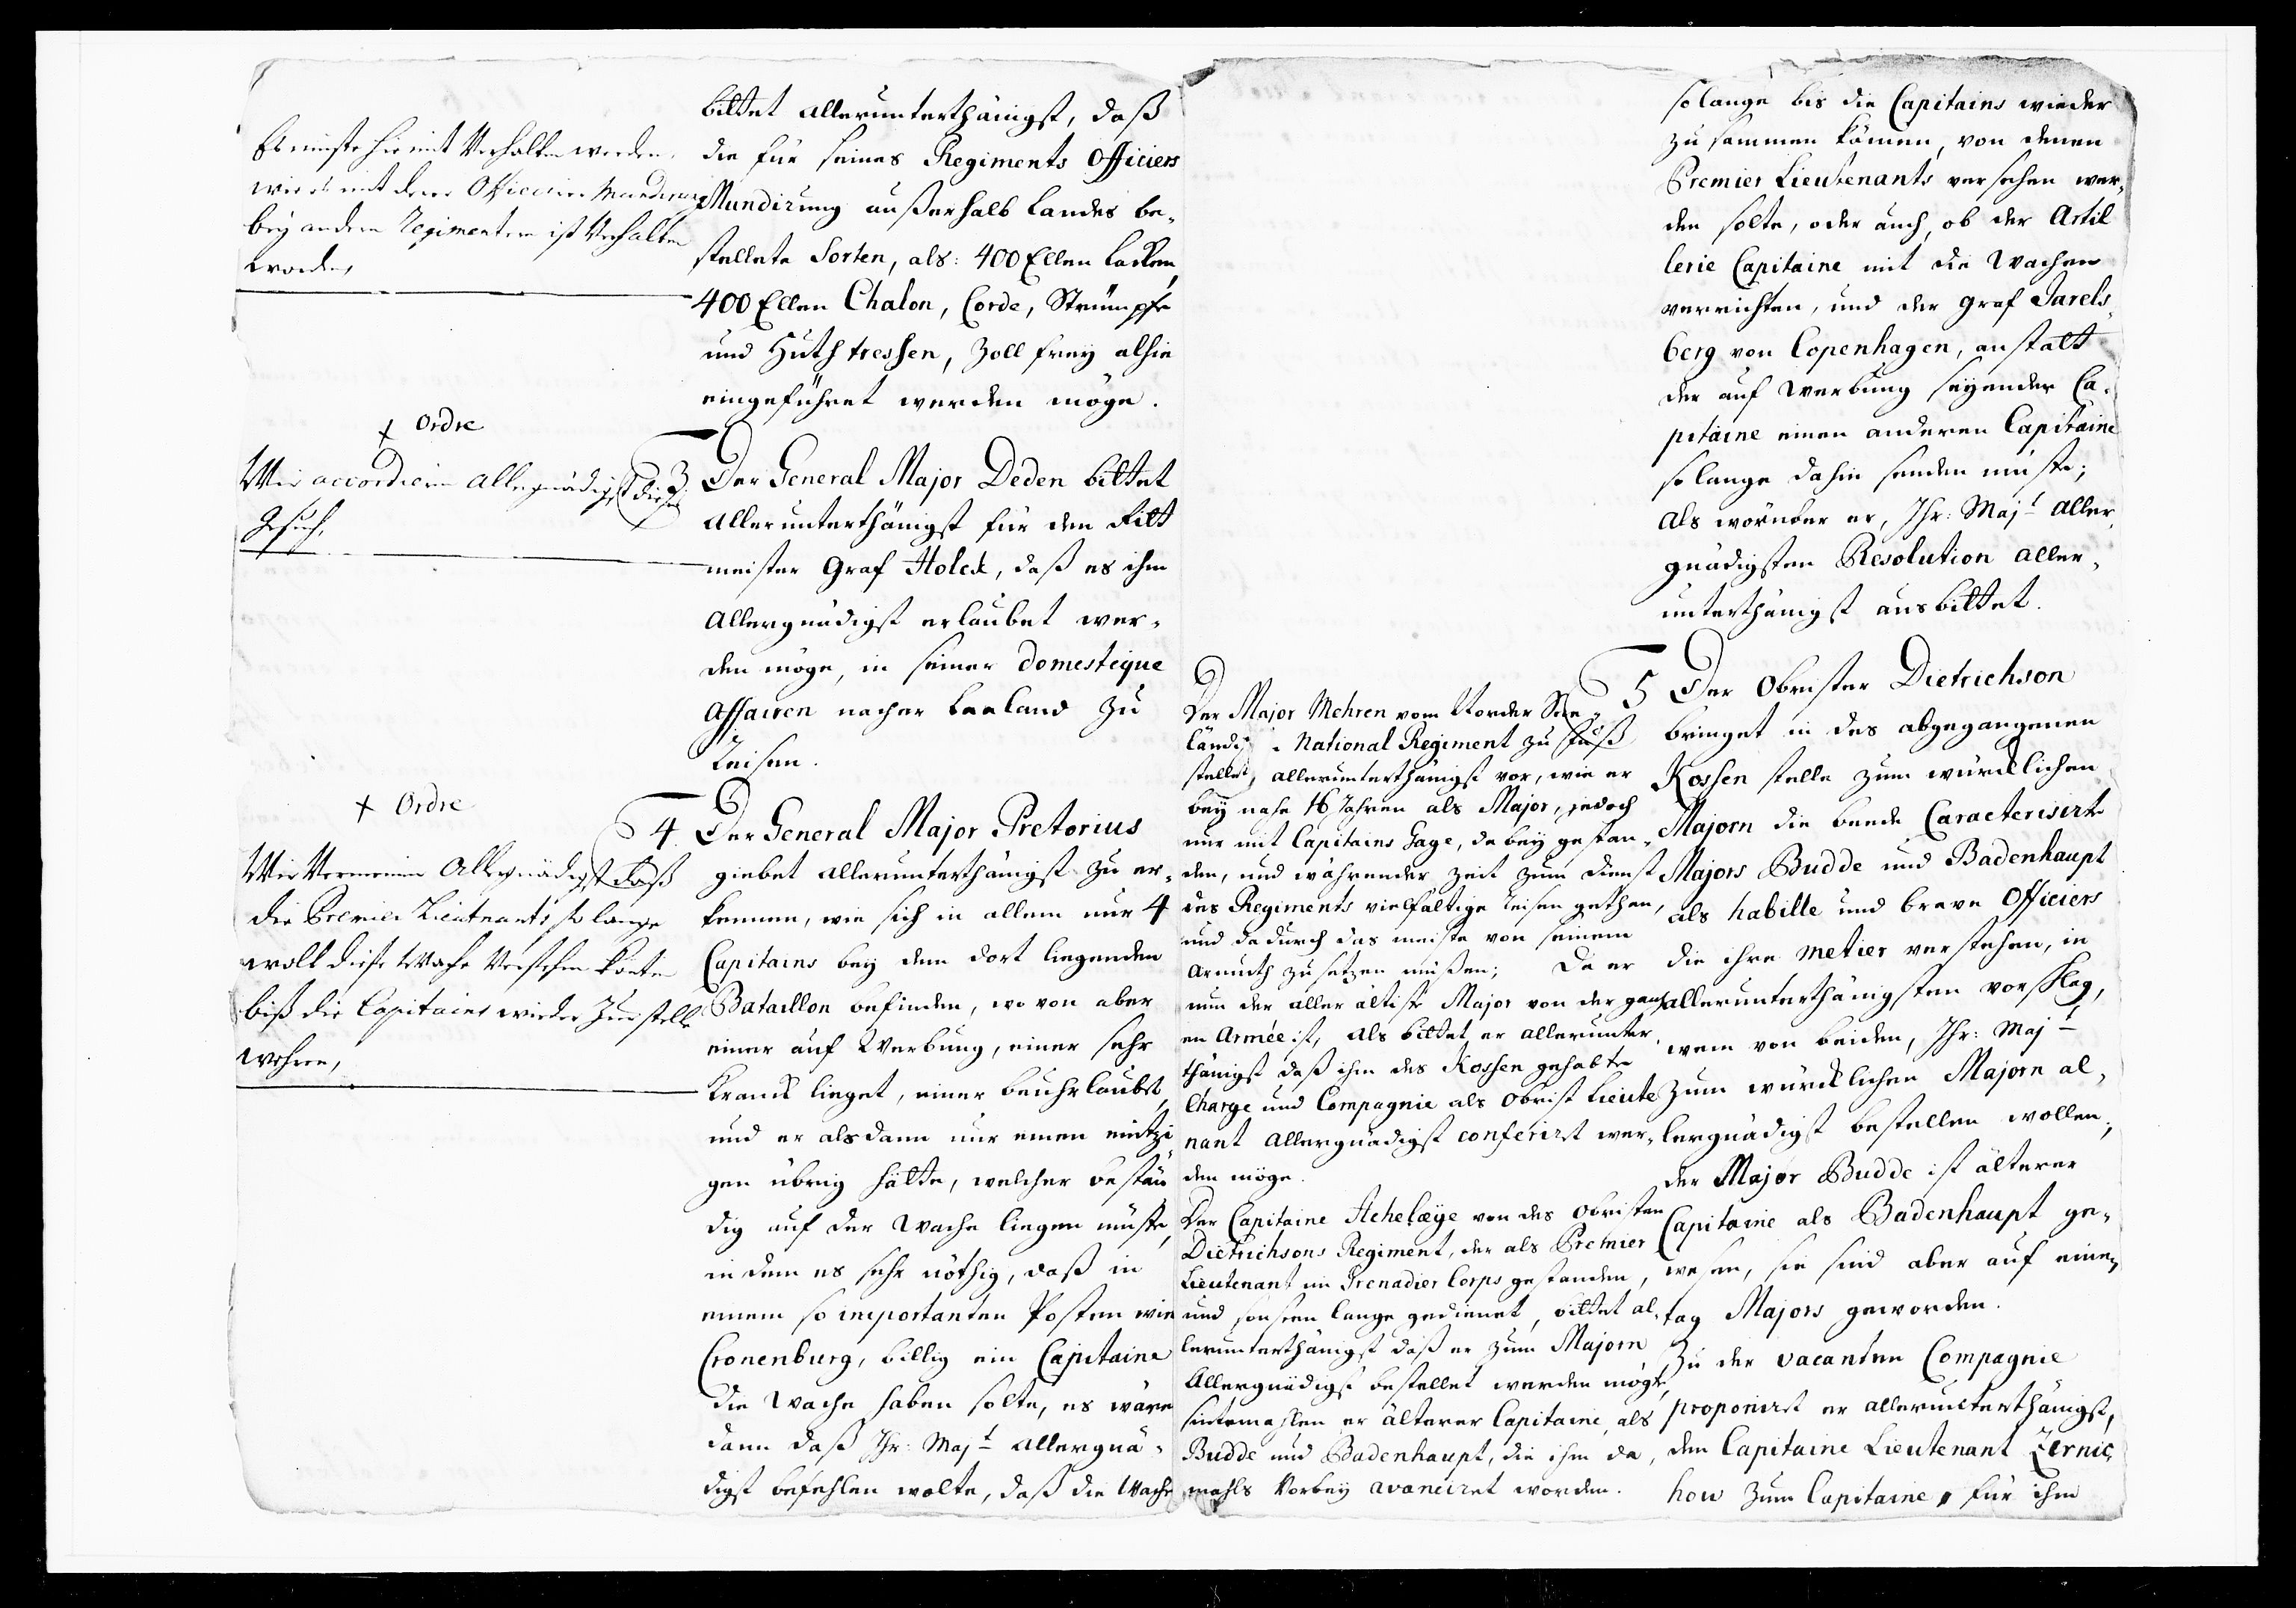 bittet allerunterthänigst, daß
die für seines Regiments Officiers
Mundirung außerhalb Landes be-
stellete Sorten, als: 400 Ellen Lacken,
400 Ellen Chalon, Corde, Strümpfe
und Huth tressen, Zoll frey alhie
eingeführet werden möge.
Es müste hie mit Verhalten werden,
wie es mit denen Officirer Mundirung
bey andern Regimentern ist Verhalten
worden,
+ Ordre
Wir accordiren Allergnädigst dieses
Gesuch,
3 Der General Major Deden bittet
Allerunterthänigst für den Ritt
meister Graf Holck, daß es ihm
Allergnädigst erlaubet wer-
den möge, in seiner domestique
Affairen nacher Laaland zu
Reisen.
+ Ordre
Wir Vermeinen Allergnädigst daß
die Premier Lieutnants so lange
woll diese Wache Versehen könten
biß die Capitains wieder Zur stelle
wehren,
4. Der General Major Pretorius
giebet allerunterthänigst zu er-
kennen, wie sich in allem nur 4
Capitains bey dem dort liegenden
Bataillon befinden, wo von aber
einer auf Werbung, einer sehr
Kranck lieget, einer beuhrlaubt,
und er alsdann nur einen eintzi
gen übrig hätte, welcher bestän
dig auf der Wache liegen müste,
in dem es sehr nöthig, daß in
einem so importanten Posten wie
Cronenburg, billig ein Capitaine
die Wache haben solte, es wäre
dann daß Ihr: Majt allergnä-
digst befehlen wolte, daß die Wache
so lange bis die Capitains wieder
zusammen kämen, von denen
Premier Lieutenants versehen wer-
den solte, oder auch, ob der Artil
lerie Capitaine mit die Wachen
verrichten, und der Graf Jarels-
berg von Copenhagen, anstatt
der auf Werbung seyender Ca-
pitaine einen anderen Capitaine
so lange dahin senden müste;
Als worüber er, Ihr: Majt Aller-
gnädigsten Resolution aller-
unterthänigst ausbittet.
Der Major Mehren vom Norder See-
ländis. National Regiment zu Fuß
stellet, allerunterthänigst vor, wie er
bey nahe 16 Jahren als Major, jedoch
nur mit Capitains Gage, dabey gestan-
den, und währender Zeit zum Dienst
des Regiments vielfältige Reisen gethan,
und dadurch das meiste von seinem
Armuth zusetzen müßen; Da er
nun der aller ältiste Major von der gantz
en Armée ist, Als bittet er allerunter-
thänigst daß ihm des Kossen gehabte
Charge und Compagnie als Obrist Lieute
nant Allergnädigst conferiret wer-
den möge.
Der Capitaine Acheleye von des Obristen
Dietrichsons Regiment, der als Premier
Lieutenant im Grenadier Corps gestanden,
und sonsten lange gedienet, bittet al-
lerunterthänigst daß er zum Majorn
Allergnädigst bestellet werden möge,
sintemahlen er älterer Capitaine, als
Budde und Badenhaupt, die ihm da-
mahls Vorbey avanciret worden.
5 Der Obrister Dietrichson
bringet in des abgegangenen
Kossen stelle zum würcklichen
Majorn die beede Caracterisirte
Majors Budde und Badenhaupt
als habille und brave Officiers
die ihre metier verstehen, in
allerunterthänigsten vorschlag,
wem von beiden, Ihr: Majt
zum würcklichen Majorn al-
lergnädigst bestellen wollen,
der Major Budde ist älterer
Capitaine als Badenhaupt ge-
wesen, sie sind aber auf einen
tag Majors geworden.
Zu der vacanten Compagnie
proponiret er allerunterthänigst,
den Capitaine Lieutenant Zernic-
how zum Capitaine, für ihm